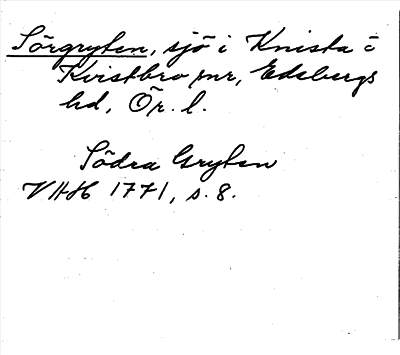 Sörgryten, sjö i Knista o
Kvistbro snr, Edsbergs
hd, Ör. l.
Södra Gryten
VHH 1771, s. 8.